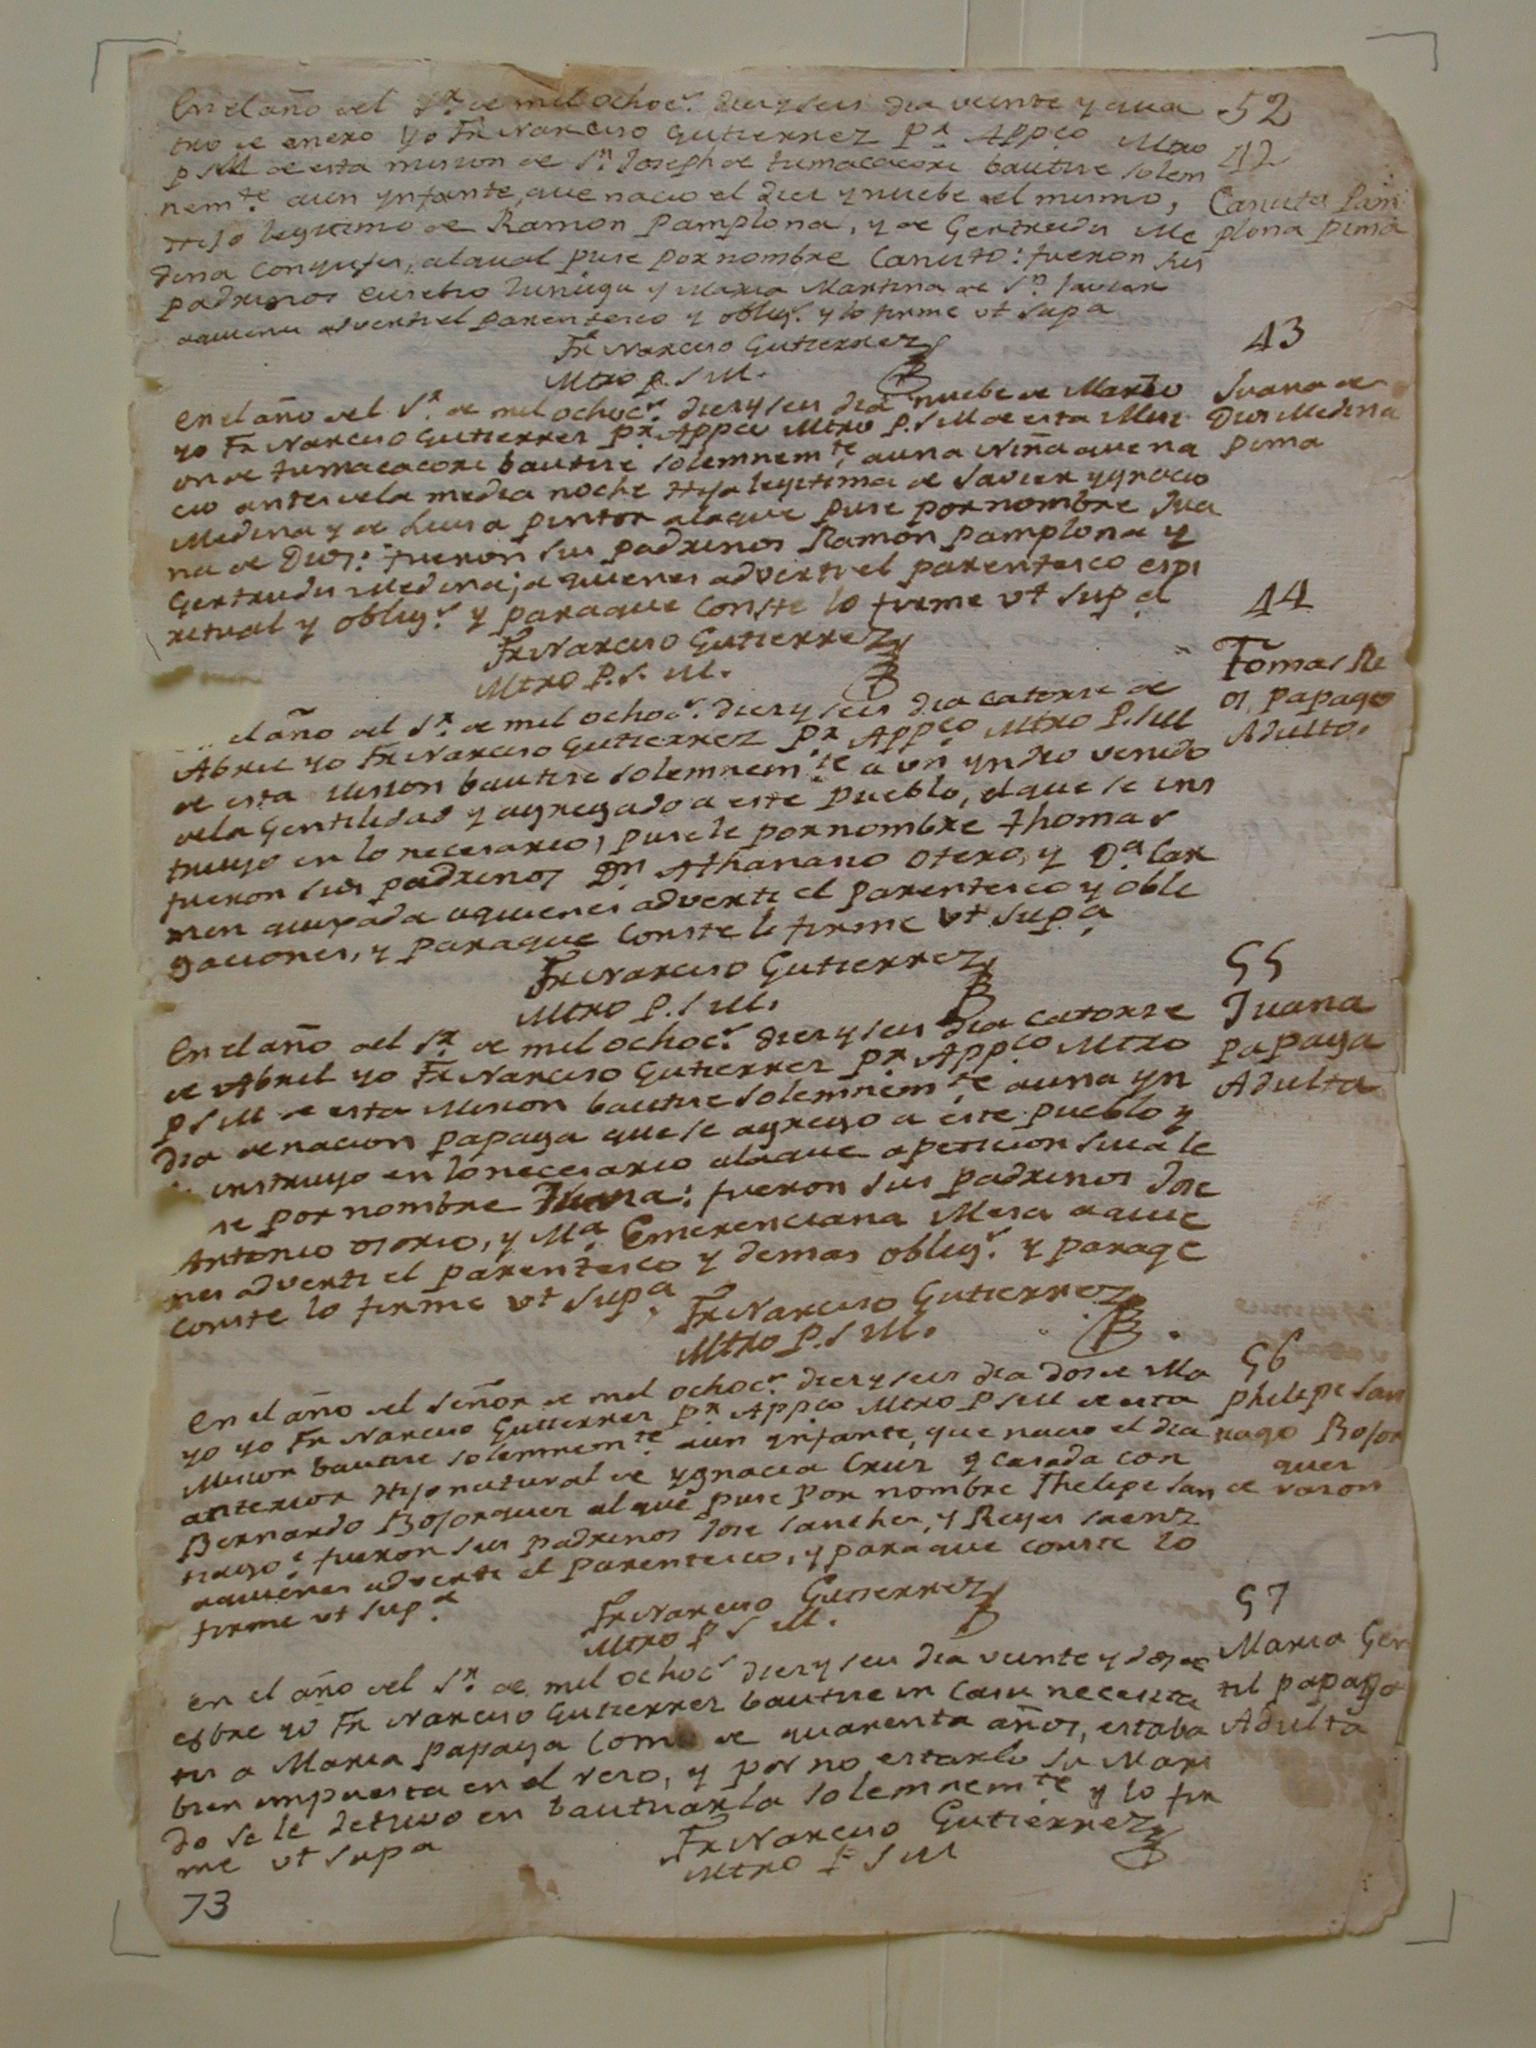 En el año del Sr. de mil ochocs. diez y seis dia veinte y qua
tro de enero Yo Fr. Narciso Gutierrez Pr. Appco Mtro
p S M de esta mision de Sn. Joseph de tumacacori bautise solem
nemte. aun ynfante, que nacio el diez y nuebe del mismo,
Hijo legitimo de Ramon Pamplona, y de Gertrudis Me
dina Conyujes, alqual puse por nombre Canuto: fueron sus
padrinos Eusebio Zuñiga y Maria Martina de Sn. Javier
aquienes adverti el parentesco y obligs. y lo firme vt supa
Fr Narciso Gutierrez
Mtro p. S M.
52
42
Canuta Pam
plona pima
En el año del Sr. de mil ochocs. diez y seis dia nuebe de Marzo
yo Fr Narciso Gutierrez Pr. Appco Mtro P. S M de esta Misi
on de tumacacori bautise solemnemte. auna Niña que na
cio antes dela media noche Hija legitima de Savier ygnacio
Medina y de Luisa pintor alaque puse por nombre Jua
na de Dios: fueron sus padrinos Ramon Pamplona y
Gertrudis Medina; a quienes adverti el parentesco espi
ritual y obligs. y paraque Conste lo firme vt sup
Fr Narciso Gutierrez
Mtro P. S. M.
43
Juana de
Dios Medina
pima
el año del Sr. de mil ochocs. diez y seis dia catorse de
Abril yo Fr Narciso Gutierrez Pr. Appco Mtro P. S M
de esta Mision bautise solemnemte a vn yndio venido
dela Gentilidad y agregado a este Pueblo, el que se ins
truyo en lo necesario, pusele por nombre Thomas
fueron sus padrinos Dn. Athanasio Otero, y Da. Car
men quixada aquienes adverti el parentesco y obli
gaciones, y paraque Conste lo firme vt supa
Fr Narciso Gutierrez
Mtro P. S M.
44
Tomas Re
os papago
Adulto.
En el año del Sr. de mil ochocs. diez y seis dia catorse
de Abril yo Fr Narciso Gutierrez Pr Appco Mtro
P S M de esta Mision bautise solemnemte auna yn
dia de nacion papaga que se agrego a este pueblo y
instruyo en lo necesario alaque a peticion suia le
se por nombre Juana: fueron sus padrinos Jose
Antonio Osorio, y Ma. Emerenciana Mesa aquie
nes adverti el parentesco y demas obligs. y paraqe
conste lo firme vt supa.
Fr Narciso Gutierrez
Mtro P. S M.
55
Juana
papaga
Adulta
En el año del Señor de mil ochocs. diez y seis dia dos de Ma
yo yo Fr Narciso Gutierrez Pr Appco Mtro P S M de esta
Mision bautise solemnemte. aun ynfante, que nacio el dia
anterior Hijo natural de ygnacia Crus y casada con
Bernardo Bojorques al que puse por nombre Phelipe San
tiago: fueron sus padrinos Jose Sanches, y Reyes Saenz
aquienes adverti el parentesco, y paraque conste lo
firme vt supa
Fr Narciso Gutierrez
Mtro P S M.
56
Phelipe San
tiago Bojor
ques
de rason
En el año del Sr. de mil ochocs diez y seis dia veinte y dos de
esbre yo Fr Narciso Gutierrez bautise in Casu necesita
tis a Maria papaga como de quarenta años, estaba
bien impuesta en el reso, y por no estarlo su Mari
do se le detuvo en bautisarla solemnemte y lo fir
me vt supa
Fr Narciso Gutierrez
Mtro P S M
57
Maria Gen
til papaga
Adulta
73